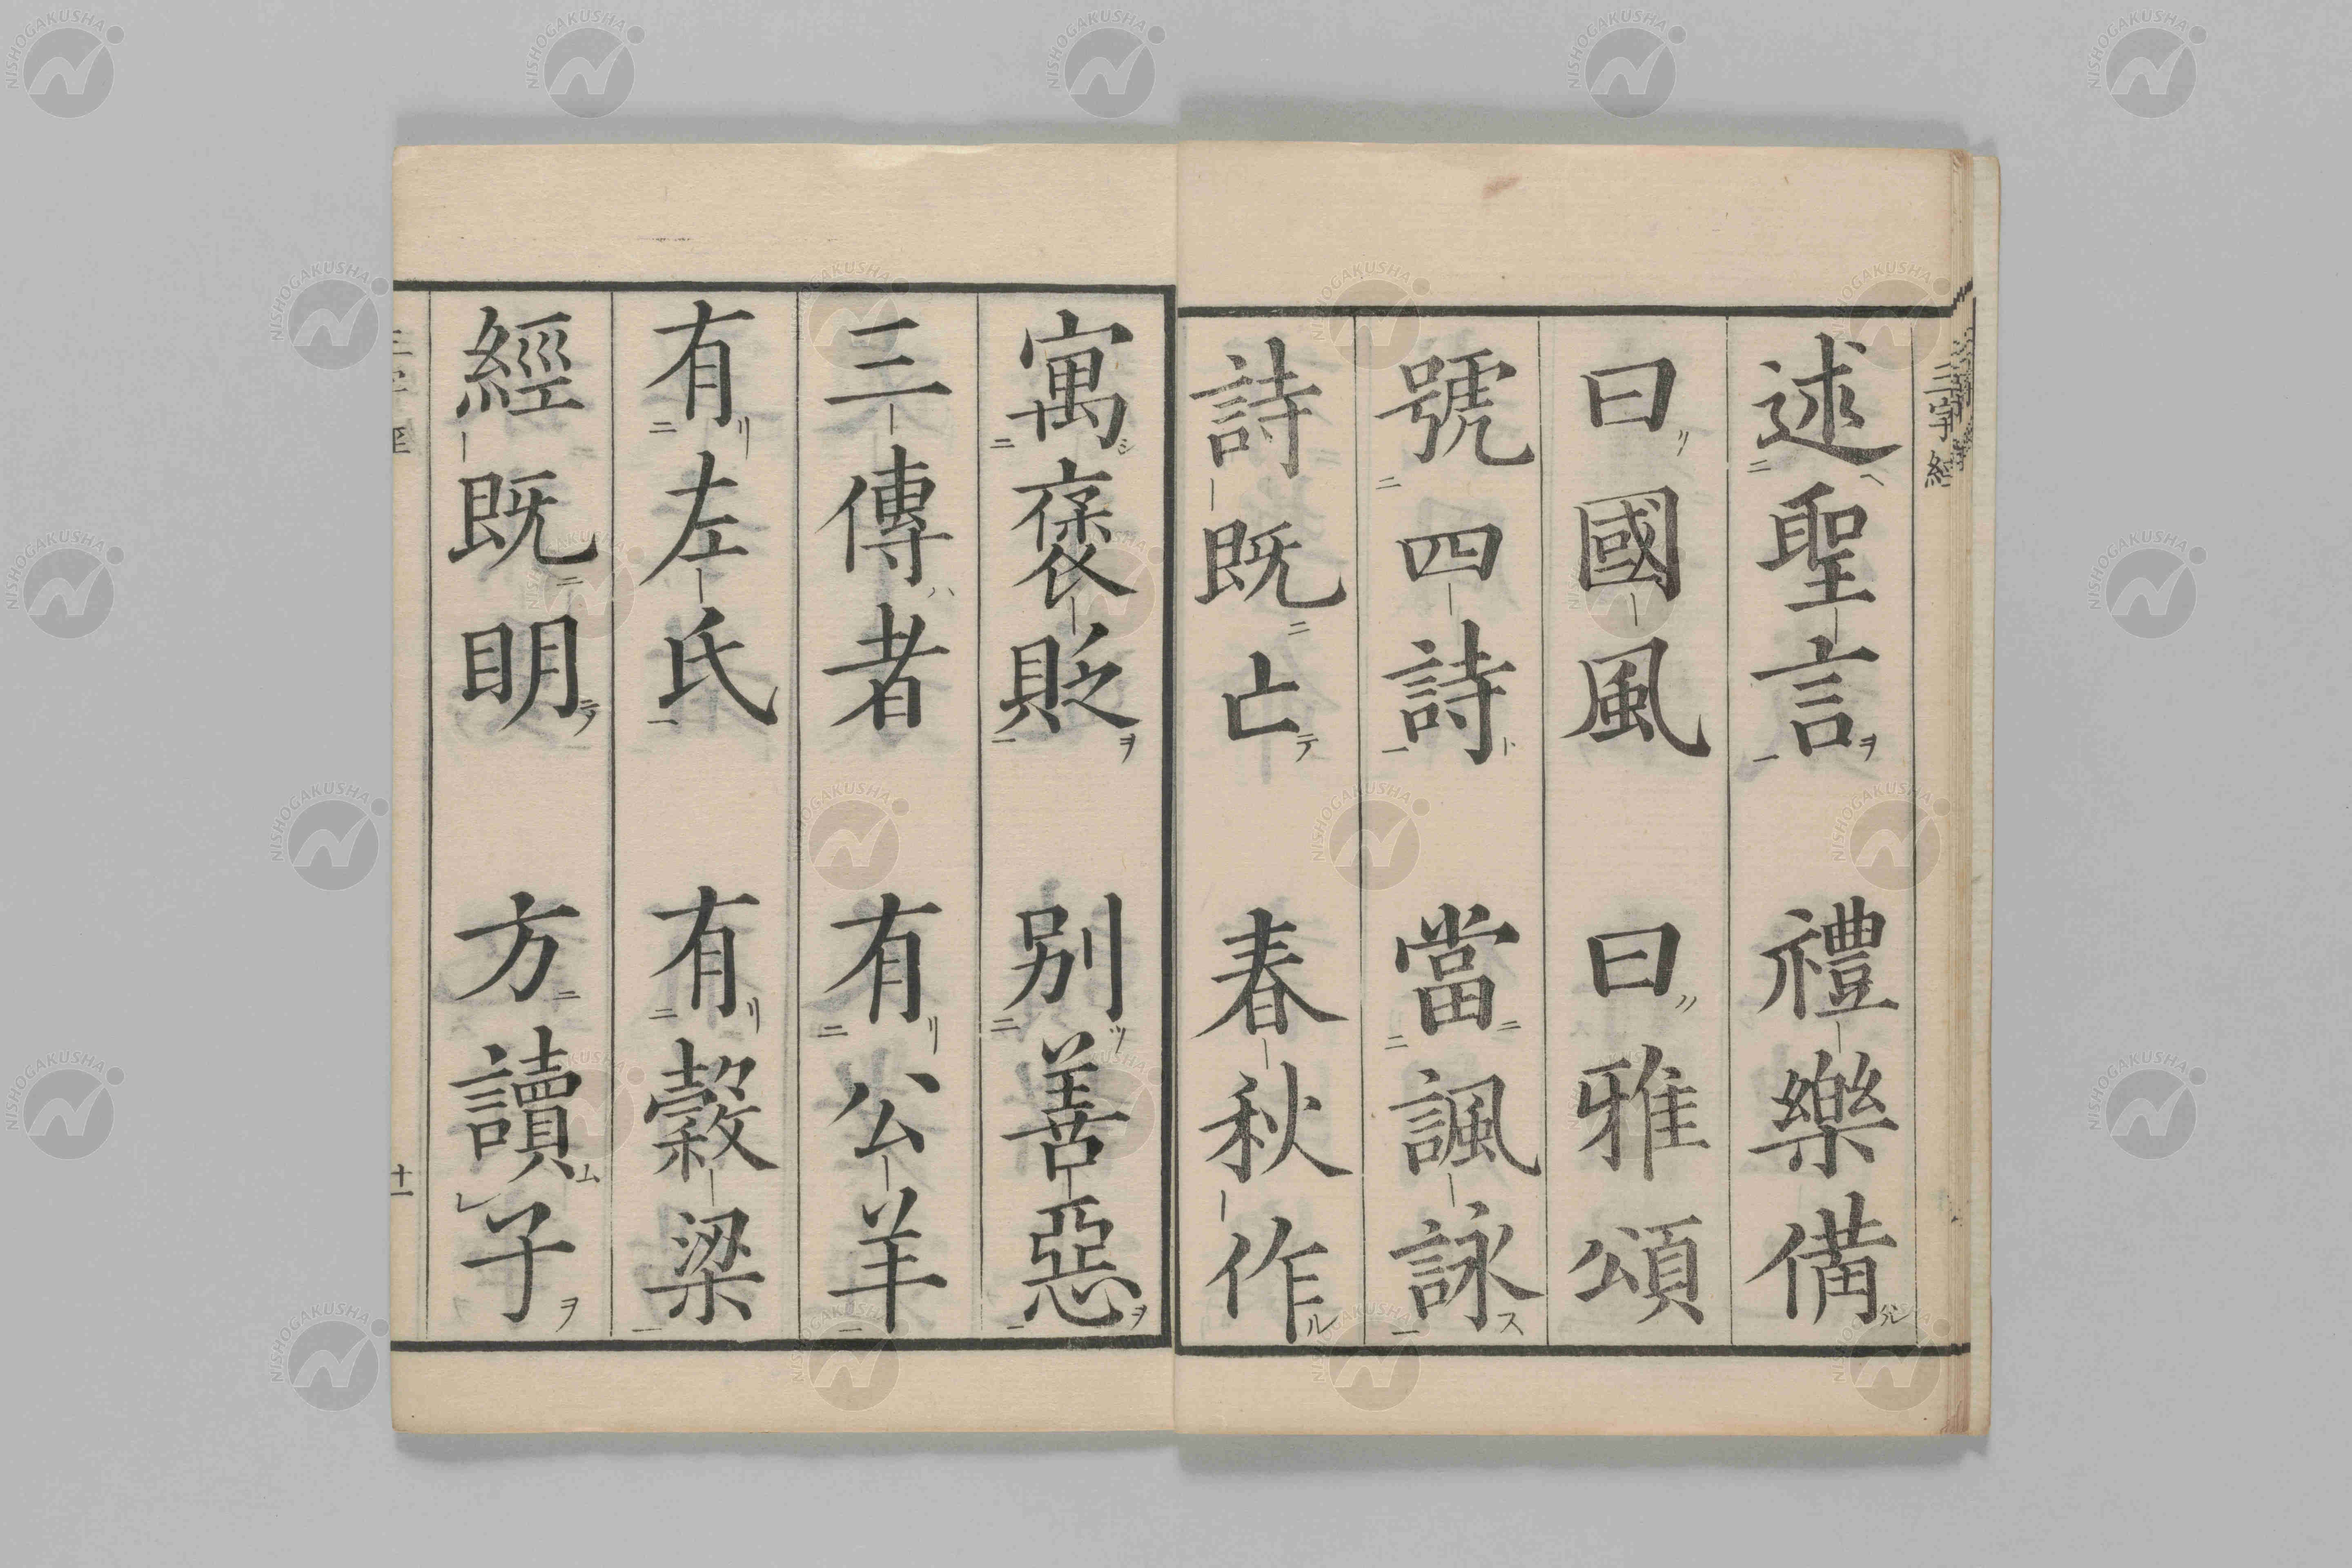 三字經
述聖言 禮樂備
曰國風 曰雅頌
號四詩 當諷詠
詩既亡 春秋作
寓褒貶 別善惡
三傳者 有公羊
有左氏 有穀梁
經既明 方讀子
十一
NISHOGAKUSHA